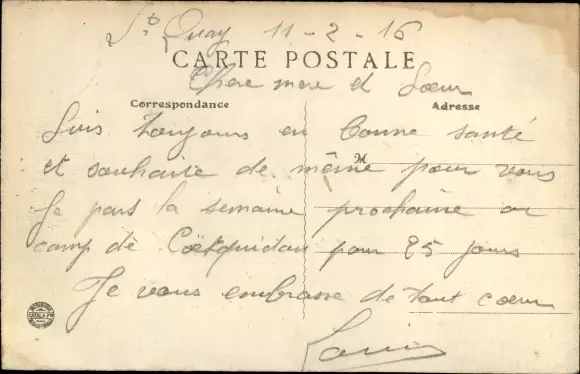 St Quay 11-2-16
CARTE POSTALE
Chere mere et Soeur
Correspondance Adresse
Suis toujours en bonne santé
et souhaite de même pour vous
M
Je pars la semaine prochaine au
camp de Coëtquidan pour 25 jours
Je vous embrasse de tout coeur
Louis